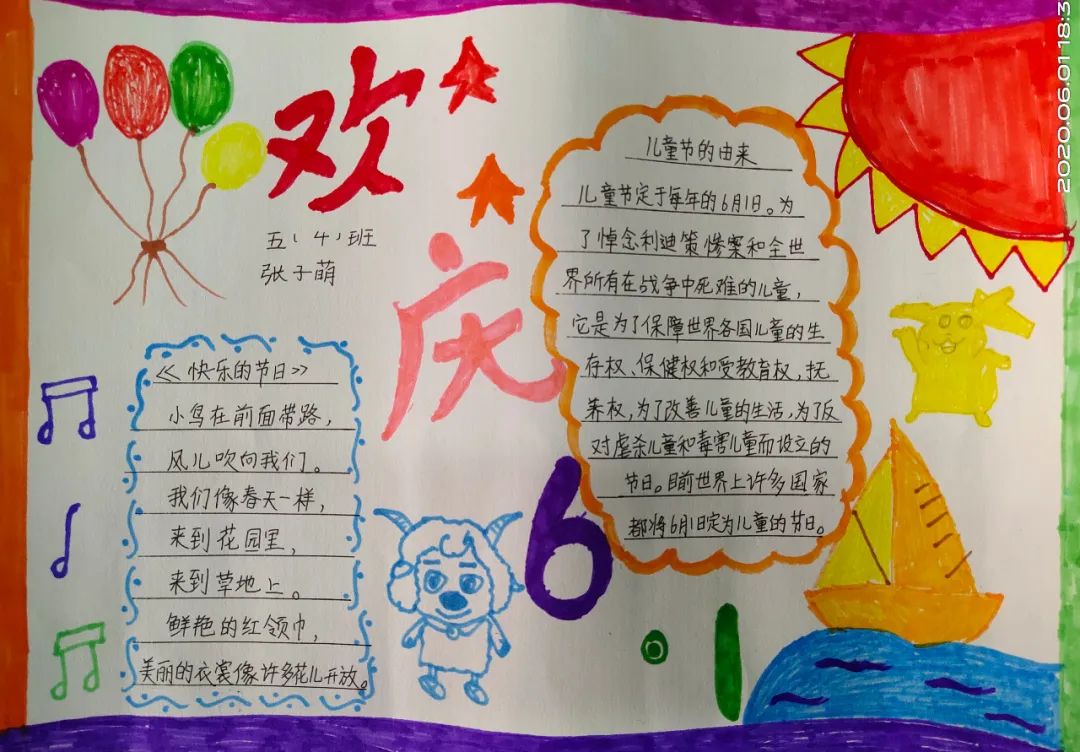 欢
庆
6·1
五(4)班
张子萌
《快乐的节日》
小鸟在前面带路，
风儿吹向我们。
我们像春天一样，
来到花园里，
来到草地上。
鲜艳的红领巾，
美丽的衣裳像许多花儿开放。
儿童节的由来
儿童节定于每年的6月1日。为
了悼念利迪策惨案和全世
界所有在战争中死难的儿童，
它是为了保障世界各国儿童的生
存权、保健权和受教育权，抚
养权，为了改善儿童的生活，为了反
对虐杀儿童和毒害儿童而设立的
节日。目前世界上许多国家
都将6月1日定为儿童的节日。